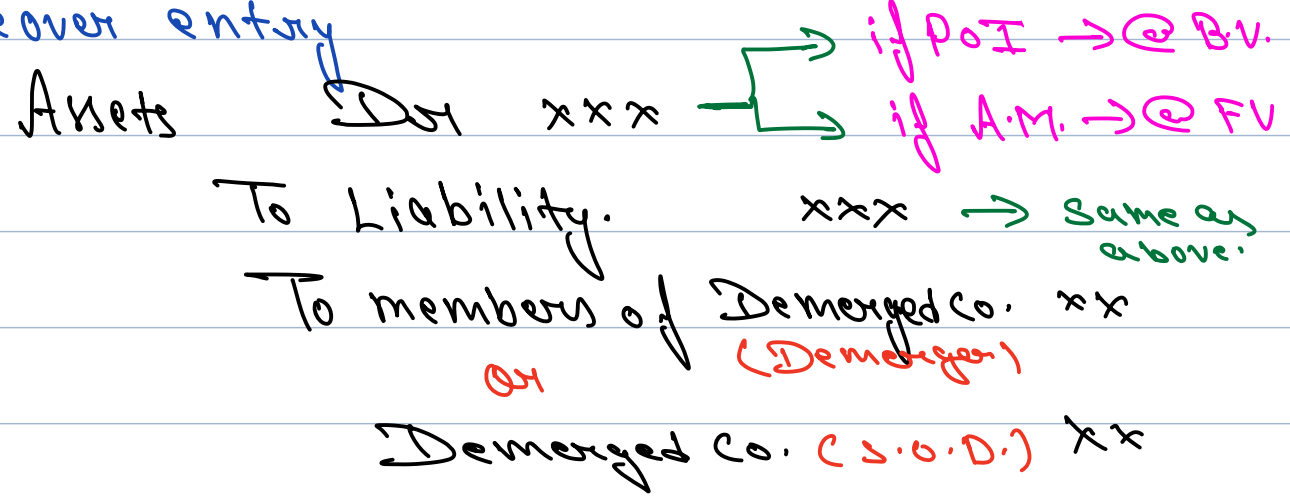 eover entry
if PoI → @ B.V.
Assets Dr xxx
if A.M. → @ FV
To Liability. xxx → Same as
above.
To members of Demerged Co. xx
(Demerger)
or
Demerged Co. (S.O.D.) xx